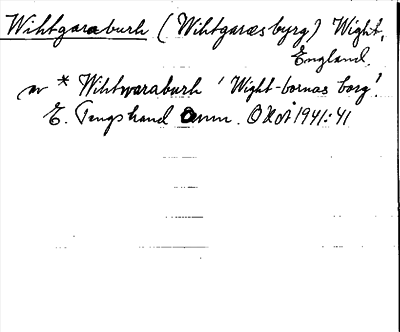 Wihtgaraburh (Wihtgaræsbyrg) Wight,
England.
av * Wihtwaraburh 'Wight-bornas borg'.
E. Tengstrand Anm. OUOÅ 1941:41